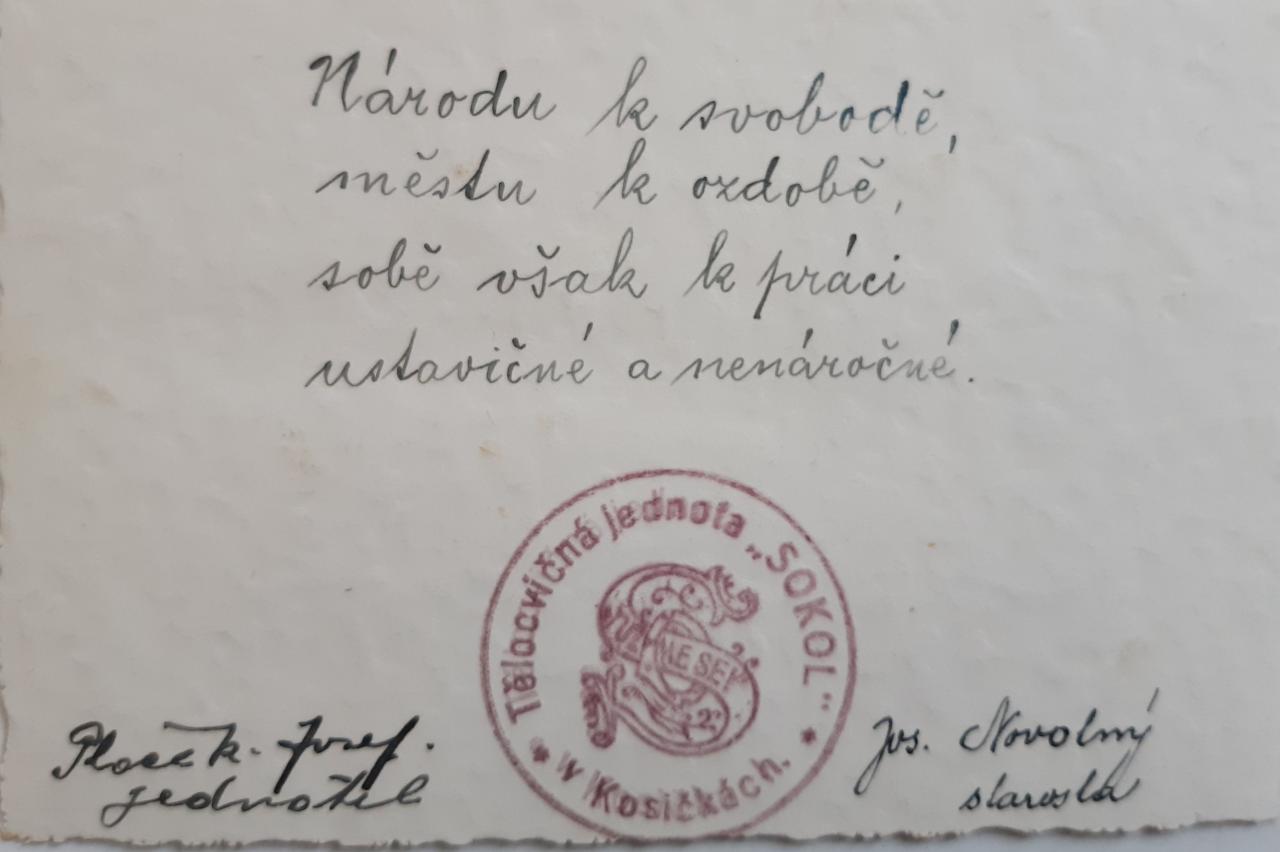 Národu k svobodě,
městu k ozdobě,
sobě však k práci
ustavičné a nenáročné.
Tělocvičná jednota „SOKOL“
v Kosičkách.
Josef.
jednatel
Jos. Novotný
starosta